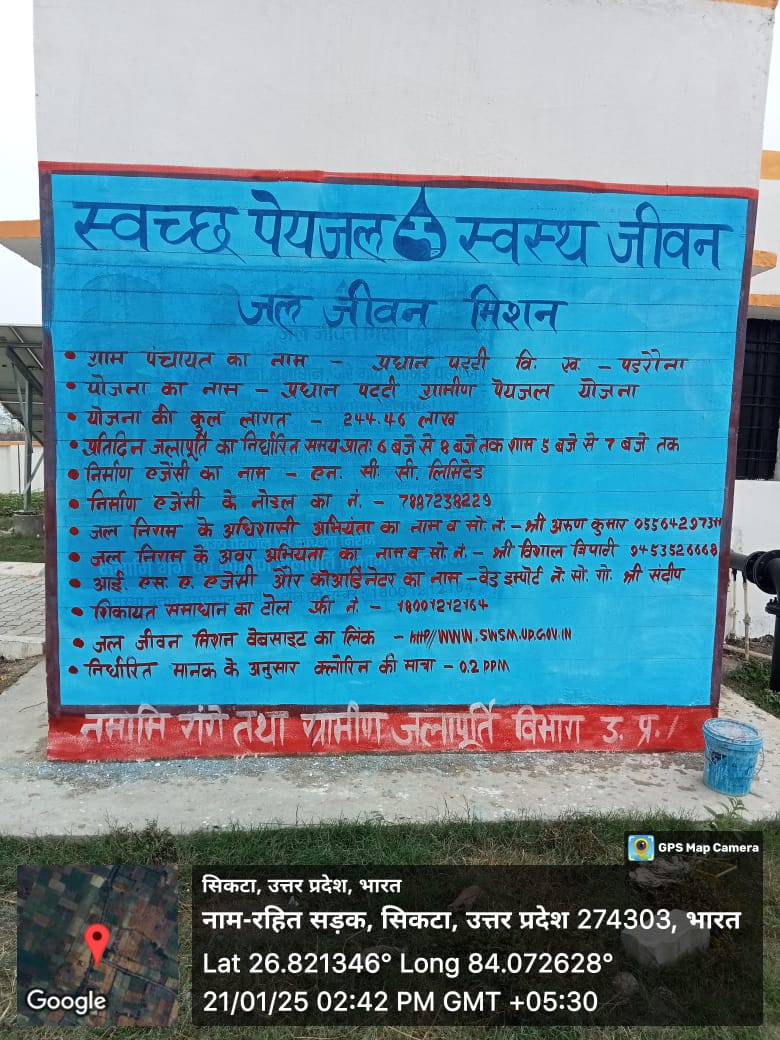 स्वच्छ पेयजल स्वस्थ जीवन
जल जीवन मिशन
• ग्राम पंचायत का नाम - प्रधान पट्टी वि. ख. - पडरौना
• योजना का नाम - प्रधान पट्टी ग्रामीण पेयजल योजना
• योजना की कुल लागत - 244.46 लाख
• प्रतिदिन जलापूर्ति का निर्धारित समय प्रातः 6 बजे से 8 बजे तक शाम 5 बजे से 7 बजे तक
• निर्माण एजेंसी का नाम - एन. सी. सी. लिमिटेड
• निर्माण एजेंसी के नोडल का नं. - 7887238229
• जल निगम के अधिशासी अभियंता का नाम व मो. नं. - श्री अरुण कुमार
• जल निगम के अवर अभियंता का नाम व मो. नं. - श्री विशाल त्रिपाठी 9453526668
• आई. एस. ए. एजेंसी और कोआर्डिनेटर का नाम - श्री संदीप
• शिकायत समाधान का टोल फ्री नं. - 18001212164
• जल जीवन मिशन वेबसाइट का लिंक - http//WWW.SWSM.UP.GOV.IN
• निर्धारित मानक के अनुसार क्लोरिन की मात्रा - 0.2 PPM
नमामि गंगे तथा ग्रामीण जलापूर्ति विभाग उ. प्र.
GPS Map Camera
सिकटा, उत्तर प्रदेश, भारत
नाम-रहित सड़क, सिकटा, उत्तर प्रदेश 274303, भारत
Lat 26.821346° Long 84.072628°
21/01/25 02:42 PM GMT +05:30
Google